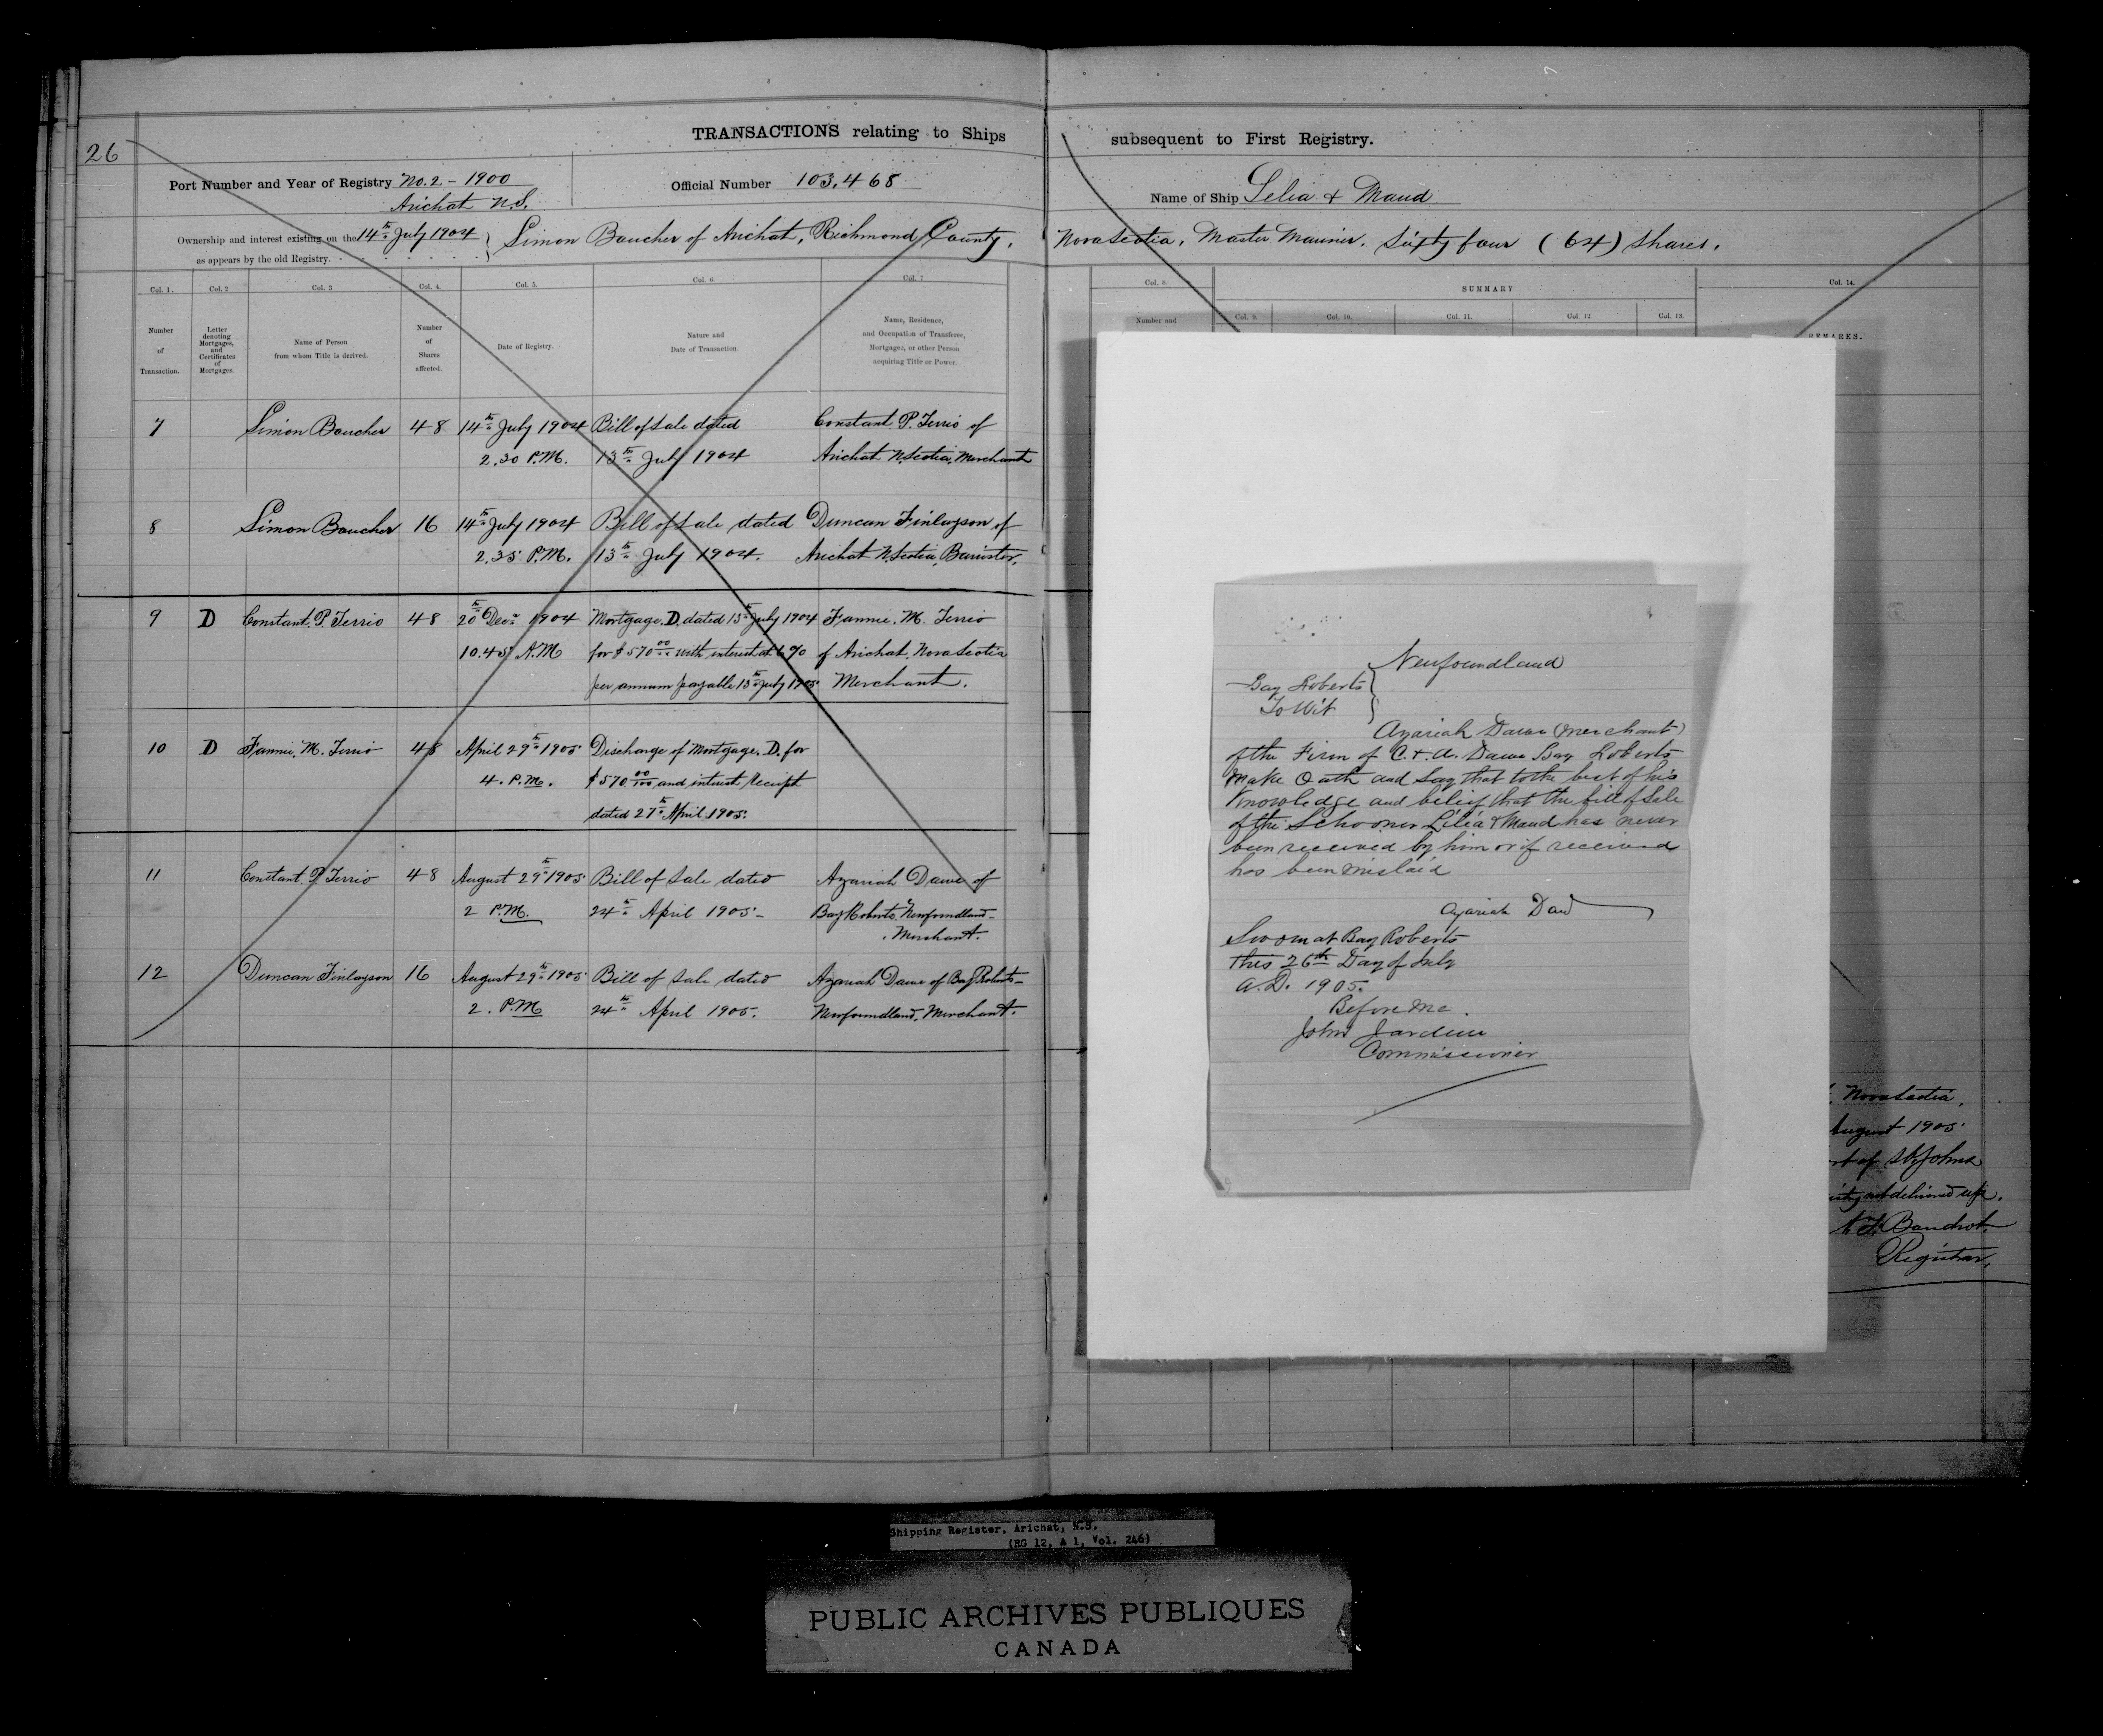 26
TRANSACTIONS relating to Ships subsequent to First Registry.
Port Number and Year of Registry No. 2 - 1900
Arichat N.S.
Official Number 103,468
Name of Ship Lelia & Maud
Ownership and interest existing on the 14th July 1904
as appears by the old Registry.
Simon Boucher of Arichat, Richmond County, Nova Scotia, Master Mariner, Sixty four (64) shares.
Col. 1. Col. 2 Col. 3 Col. 4. Col. 5. Col. 6 Col. 7
Number of Transaction.
Letter denoting Mortgages, and Certificates of Mortgages.
Name of Person from whom Title is derived.
Number of Shares affected.
Date of Registry.
Nature and Date of Transaction.
Name, Residence, and Occupation of Transferee, Mortgagee, or other Person acquiring Title or Power.
Col. 8. SUMMARY Col. 14.
Number and Col. 9. Col. 10. Col. 11. Col. 12. Col. 13.
REMARKS.
7 Simon Boucher 48 14th July 1904 Bill of Sale dated Constant P. Terrio of
2.30 P.M. 13th July 1904 Arichat N. Scotia, Merchant
8 Simon Boucher 16 14th July 1904 Bill of Sale dated Duncan Finlayson of
2.35 P.M. 13th July 1904. Arichat N. Scotia, Barrister.
9 D Constant P. Terrio 48 20th Decr 1904 Mortgage D. dated 13th July 1904 Fannie. M. Terrio
10.45 A.M for $570 00 with interest at 6% of Arichat, Nova Scotia
per annum payable 13th July 1905 Merchant.
10 D Fannie. M. Terrio 48 April 29th 1905 Discharge of Mortgage. D. for
4. P.M. $570 00/100 and interest, Receipt
dated 27th April 1905.
11 Constant P. Terrio 48 August 29th 1905 Bill of Sale dated Azariah Dawe of
2 P.M. 24th April 1905 - Bay Roberts, Newfoundland -
Merchant.
12 Duncan Finlayson 16 August 29th 1905 Bill of Sale dated Azariah Dawe of Bay Roberts -
2. P.M 24th April 1905. Newfoundland, Merchant.
Newfoundland
Bay Roberts
To Wit
Azariah Dawe (Merchant)
of the Firm of C. & A. Dawe Bay Roberts
Make Oath and Say that to the best of his
Knowledge and belief that the bill of Sale
of the Schooner Lilia & Maud has never
been received by him or if received
has been mislaid
Azariah Daw
Sworn at Bay Roberts
this 26th Day of July
A.D. 1905.
Before me.
John Jardine
Commissioner
Nova Scotia.
August 1905
of St Johns
delivered up.
Registrar.
Shipping Register, Arichat, N.S.
(RG 12, A 1, Vol. 246)
PUBLIC ARCHIVES PUBLIQUES
CANADA